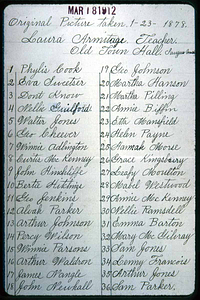 MAR 1 8 1912
Original Picture taken, 1-23-1879.
Laura Armitage Teacher.
Old Town Hall.
1 Phylis Cook
2 Eva Sweetser
3 Don't Know
4 Nellie Guilford
5 Walter Jones
6 Geo Cheever
7 Winnie Adlington
8 Curtis Mc Kenney
9 John Hinchliffe
10 Bertie Hitchings
11 Geo Jenkins
12 Alvah Parker
13 Arthur Johnson
14 Percy Wilson
15 Winnie Parsons
16 Arthur Waldron
17 James Nangle
18 John Newhall
19 Geo Johnson
20 Martha Hanson
21 Martha Pilling
22 Annie Biffin
23 Etta Mansfield
24 Helen Payne
25 Hannah Morse
26 Grace Kingsbury
27 Leafy Houston
28 Mabel Westwood
29 Annie Mc Kenney
30 Nellie Ramsdell
31 Emma Barton
32 Mary Mc Gilvray
33 Sam Jones
34 Lenny Francis
35 Arthur Jones
36 Sam Parker